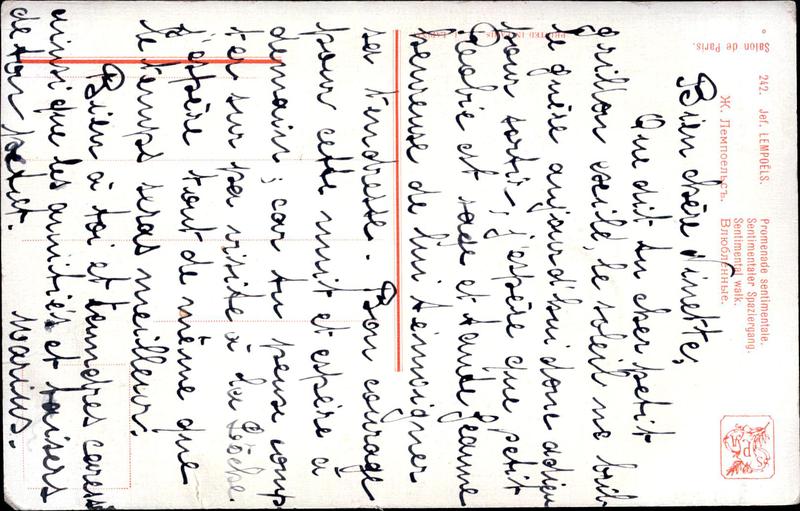 Salon de Paris.
242. Jef. LEMPOËLS.
Ж. Лемпоельсъ.
Promenade sentimentale.
Sentimentaler Spaziergang.
Sentimental walk.
Влюбленные.
PRINTED IN
Bien chère Ninette,
Que dit tu cher petit
grillon exilé, le soleil ne bril
le guère aujourd'hui donc adieu
pour sortir; j'espère que petit
est sage et tante Jeanne
heureuse de lui témoigner
sa tendresse. Bon courage
pour cette nuit et espère à
demain; car tu peux comp
ter sur ma visite à
J'espère tout de même que
le temps seras meilleur.
Bien à toi et tendres caresses
ainsi que les amitiés et baisers
de ton petit. Marius.